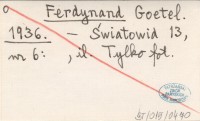 o Ferdynand Goetel.
1936. – Światowid 13,
nr 6: , il. Tylko fot.